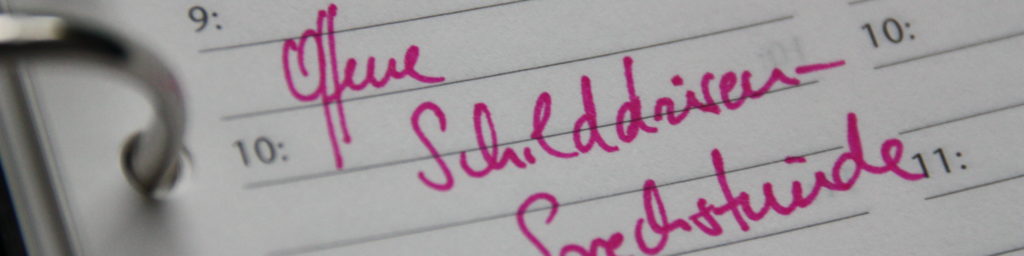 9:
Offene
10:
Schilddrüsen-
Sprechstunde
10:
11: